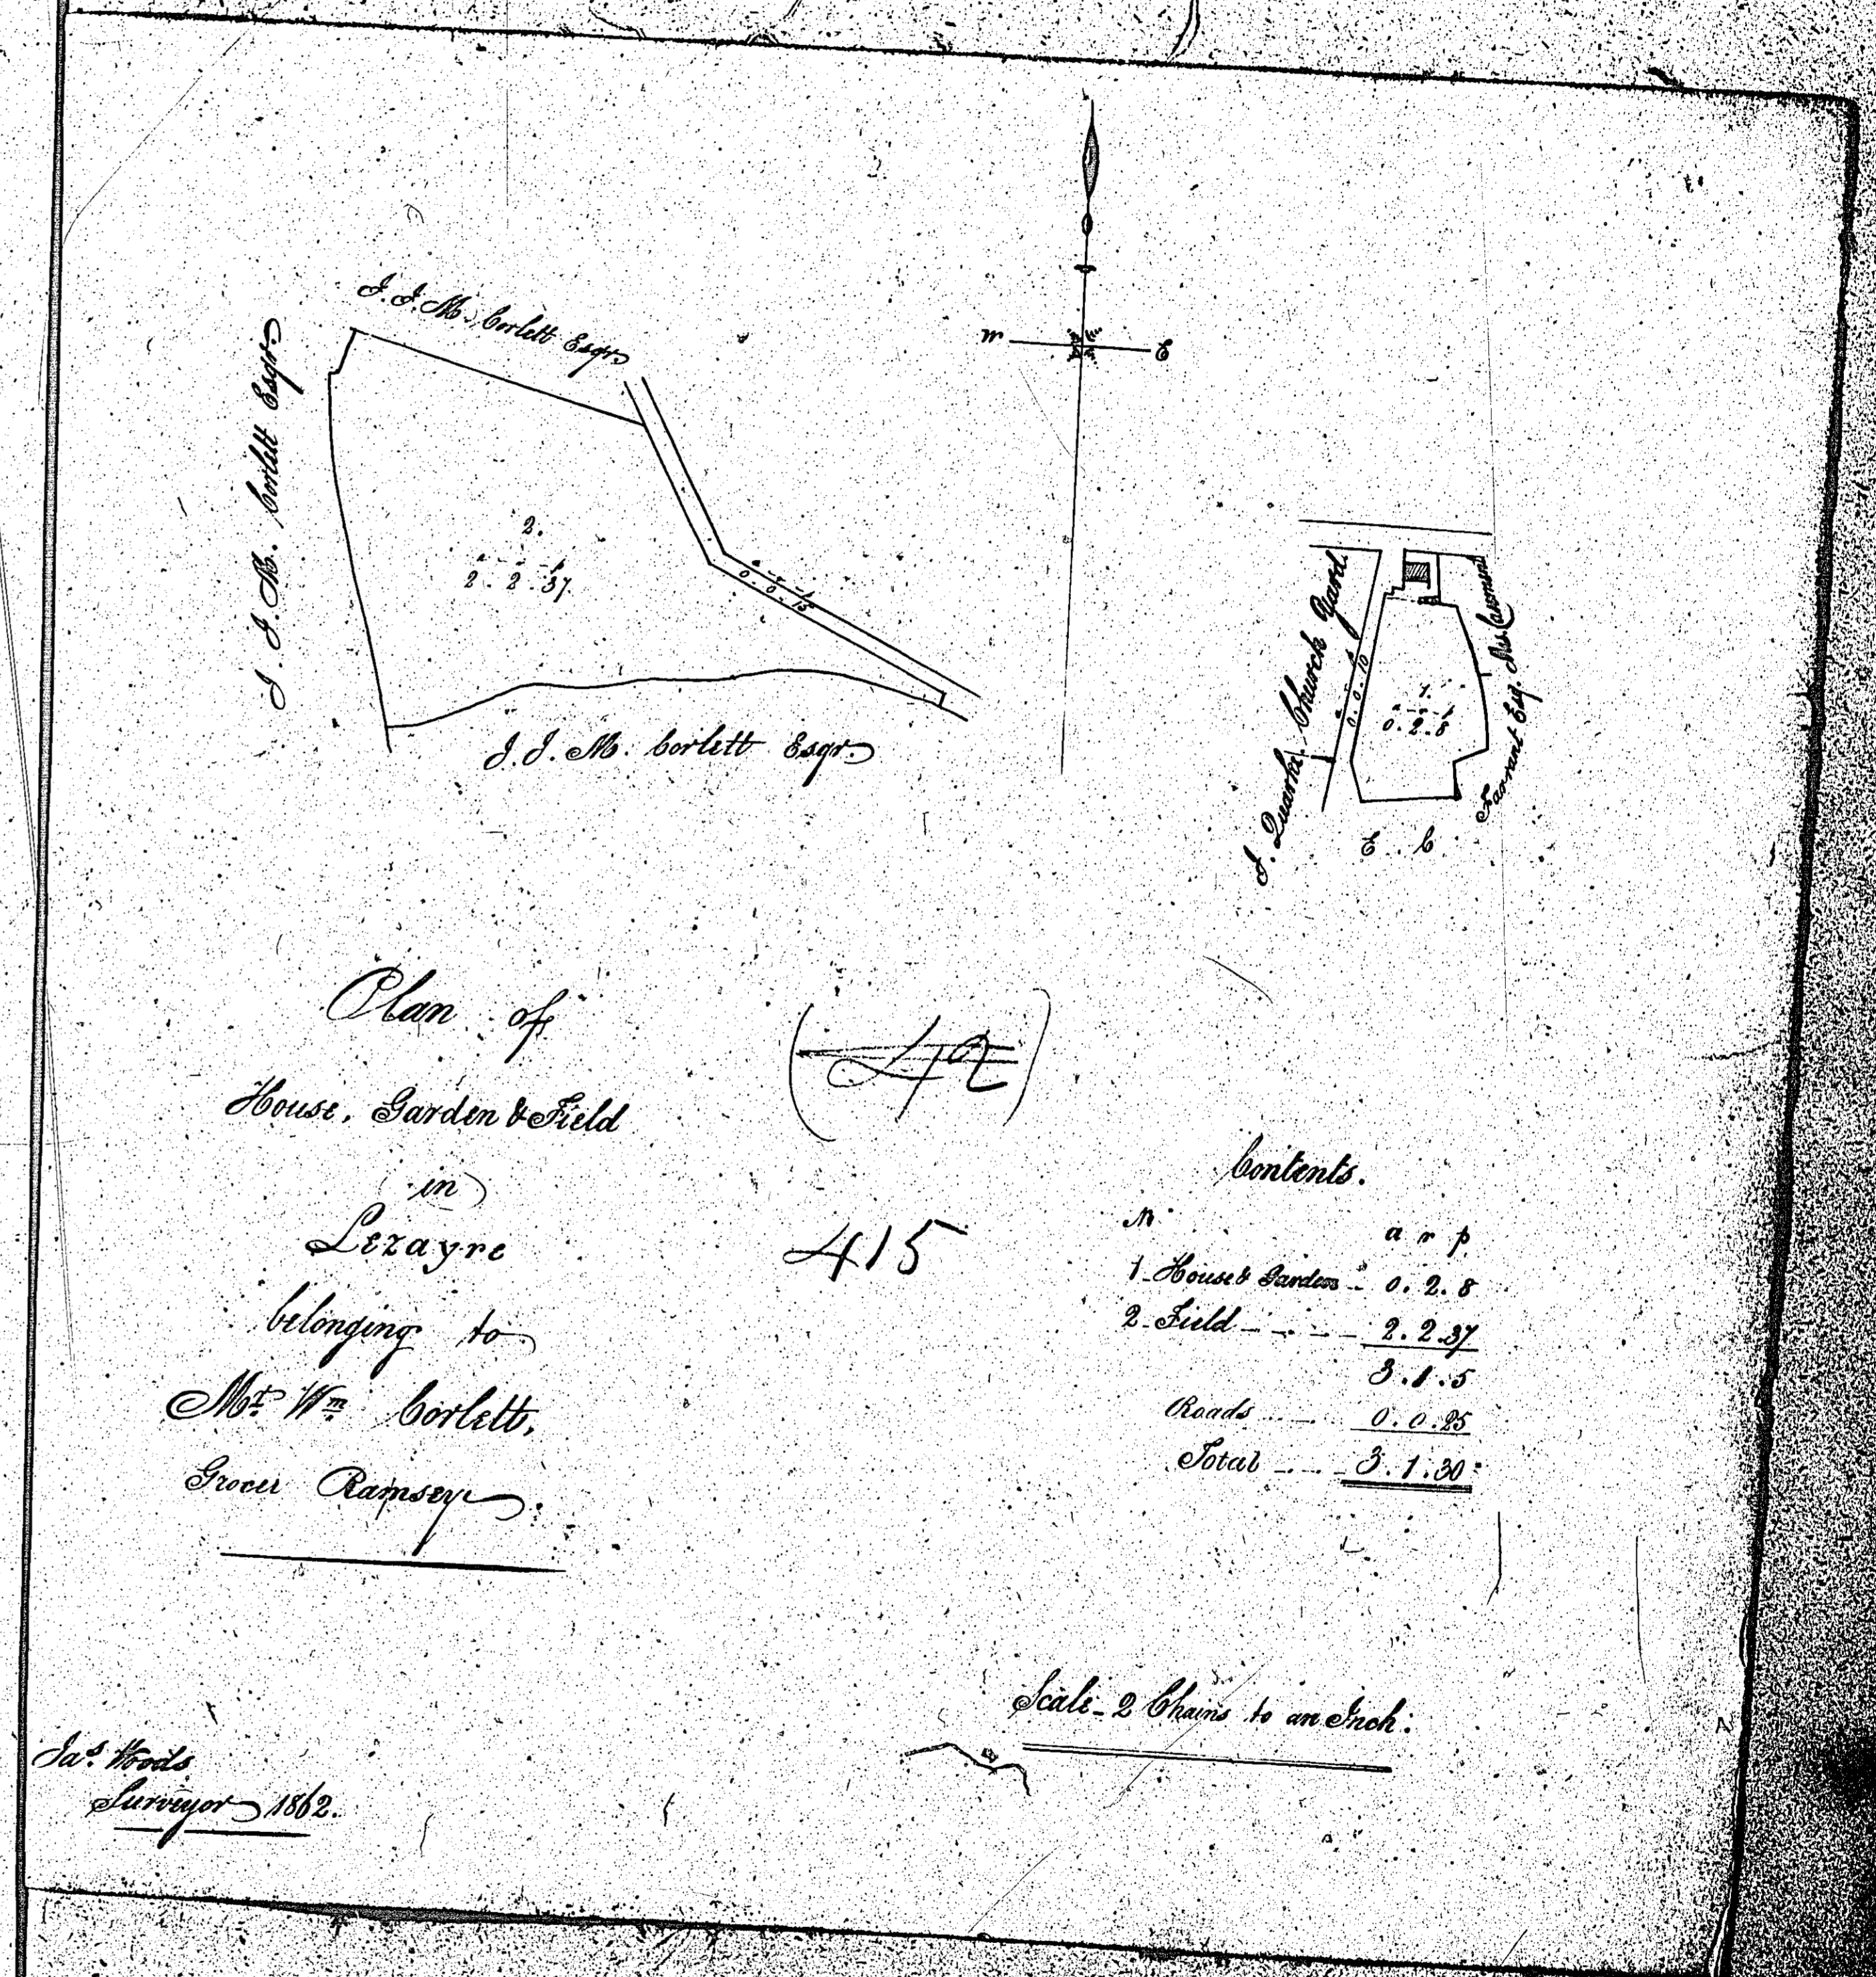 J. J. M. Corlett Esqr.
J. J. M. Corlett Esqr.
W E
2.
a r p
2. 2. 37
a r p
0. 0. 15
J. J. M. Corlett Esqr.
Church Yard
J. Quark
a r p
0. 0. 10
1.
a r p
0. 2. 8
Farrant Esq.
E. C.
Plan of
House, Garden & Field
in
Lezayre
belonging to
Mr. Wm Corlett,
Grocer Ramsey
(42)
415
Contents.
No a r p
1 House & Garden 0. 2. 8
2 Field 2. 2. 37
3. 1. 5
Roads 0. 0. 25
Total 3. 1. 30
Scale 2 Chains to an Inch.
Jas. Woods
Surveyor 1862.